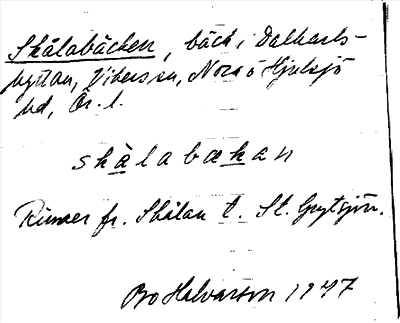 Skålabäcken, bäck i Dalkarls-
hyttan, Vikers sn, Nora o Hjulsjö
hd, Ör. l.
skålabækan
Rinner fr. Skålan t. St. Grytsjön.
Bo Halvarson 1947